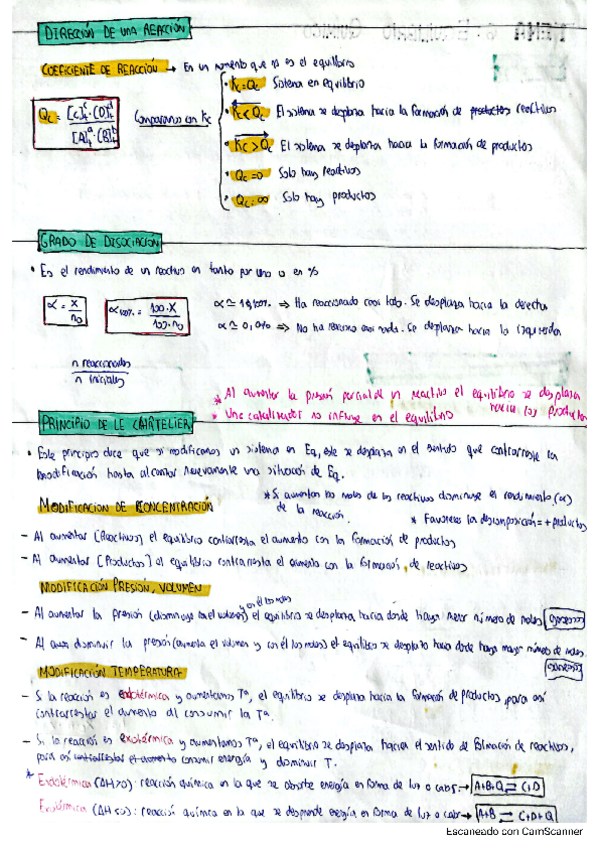 DIRECCIÓN DE UNA REACCIÓN
COEFICIENTE DE REACCIÓN → En un momento que no es el equilibrio
Qc = [C]ᶜ·[D]ᵈ / [A]ᵃ·[B]ᵇ
Comparamos con Kc
• Kc = Qc Sistema en equilibrio
• Kc < Qc El sistema se desplaza hacia la formación de reactivos
• Kc > Qc El sistema se desplaza hacia la formación de productos
• Qc = 0 Solo hay reactivos
• Qc = ∞ Solo hay productos
GRADO DE DISOCIACIÓN
• Es el rendimiento de un reactivo en tanto por uno o en %
α = x / n₀
α = 100·x / n₀
α ≃ 1, 100% ⇒ Ha reaccionado casi todo. Se desplaza hacia la derecha
α ≃ 0, 0% ⇒ No ha casi nada. Se desplaza hacia la izquierda
n reaccionados
n iniciales
* Al aumentar la presión parcial de un reactivo el equilibrio se desplaza hacia los productos
* Un catalizador no influye en el equilibrio
PRINCIPIO DE LE CHATELIER
• Este principio dice que si modificamos un sistema en Eq, este se desplaza en el sentido que contrarreste la
modificación hasta alcanzar nuevamente una situación de Eq.
MODIFICACIÓN DE CONCENTRACIÓN
* Si aumentan los moles de los reactivos disminuye el rendimiento (α)
de la reacción.
* Favorecer la descomposición = + productos
- Al aumentar [Reactivos] el equilibrio contrarresta el aumento con la formación de productos
- Al aumentar [Productos] el equilibrio contrarresta el aumento con la formación de reactivos
MODIFICACIÓN PRESIÓN, VOLUMEN
y con él los moles
- Al aumentar la presión (disminuye el volumen) el equilibrio se desplaza hacia donde haya menor número de moles
- Al disminuir la presión (aumenta el volumen y con él los moles) el equilibrio se desplaza hacia donde haya mayor número de moles
MODIFICACIÓN TEMPERATURA
- Si la reacción es endotérmica y aumentamos Tª, el equilibrio se desplaza hacia la formación de productos, para así
contrarrestar el aumento al consumir la Tª.
- Si la reacción es exotérmica y aumentamos Tª, el equilibrio se desplaza hacia el sentido de formación de reactivos,
para así el aumento consumir energía y disminuir T.
* Endotérmica (ΔH>0): reacción química en la que se absorbe energía en forma de luz o calor → A+B+Q ⇄ C+D
Exotérmica (ΔH<0): reacción química en la que se desprende energía en forma de luz o calor → A+B ⇄ C+D+Q
Escaneado con CamScanner